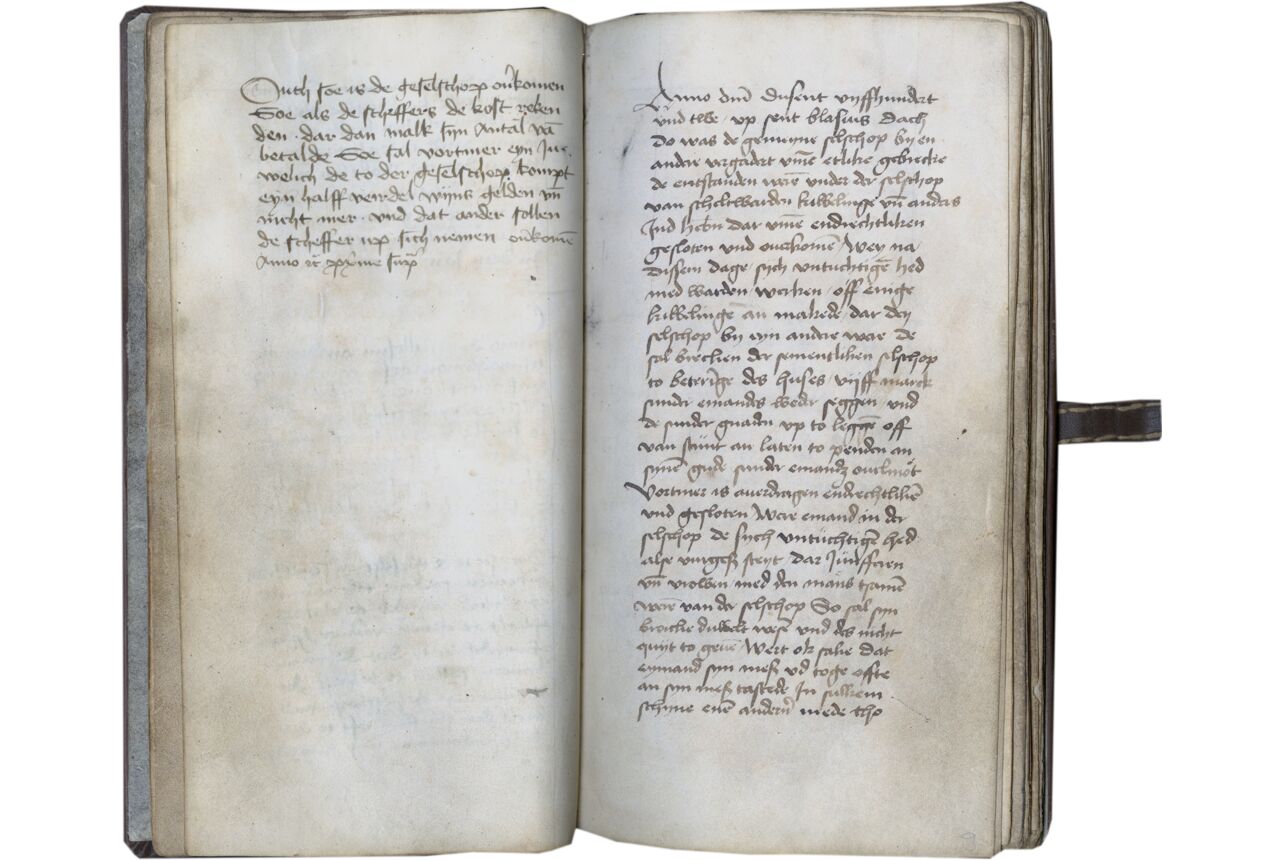 Ouch soe is de geselschop ouͤkomen
Soe als de scheffers de kost reken
den · dar dan malk syn Antal vā
betalde Soe sal vortmer eyn Ju
welich de to der geselschop kompt
eyn halff veirdel wyns gelden vn̄
nicht mer · vnd dat ander sollen
de scheffer up sich nemen ouͤkomē
Anno
Anno dm̄ dusent vyffhundert
vnd twe · up sent blasius dach
Do was de gemeyne selschop by en
ander vergadert vm̄e etlike gebrecke
de entstanden werē vnder der selschop
van scheltwarden kibbelinge vn̄ anders
Ind hebn̄ dar vm̄e endrechtliken
gesloten vnd ouerkomē / Wey na
dissem dage sych vntuchtigē hed
med warden werken off enige
kibbelinge an makede dar den
selschop by eyn ander were de
sal brechen der sementliken selschop
to beterīge des huses / vyff marck
sunder emandes weder seggen / vnd
de sunder gnaden up to leggē off
van stunt an laten to penden an
synē gude sunder emandz ouelmot
Vortmer is auerdragen endrechtlikē
vnd gesloten Were emand in der
selschop de sych vntuchtigē hed
alse vurges steyt / dar Junfferen
vn̄ vrowen med den mans tsamē
werē van der selschop So sal syn
broicke dubbelt wesē vnd des nicht
quyt to geuē / Wert ok sake dat
eymand syn mess vd toge offte
an syn mess tastede In sulkem
schyne enē andern̄ mede tho